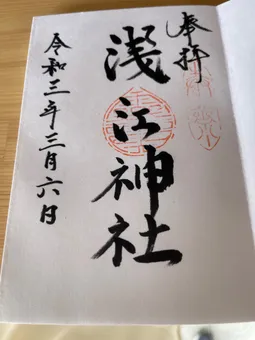 奉拝
浅江神社
令和三年三月六日